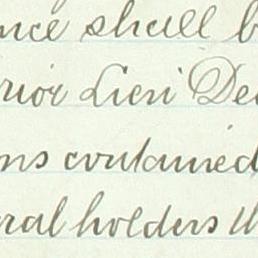 nce shall b
rior Lien De
ns contained
ral holders th